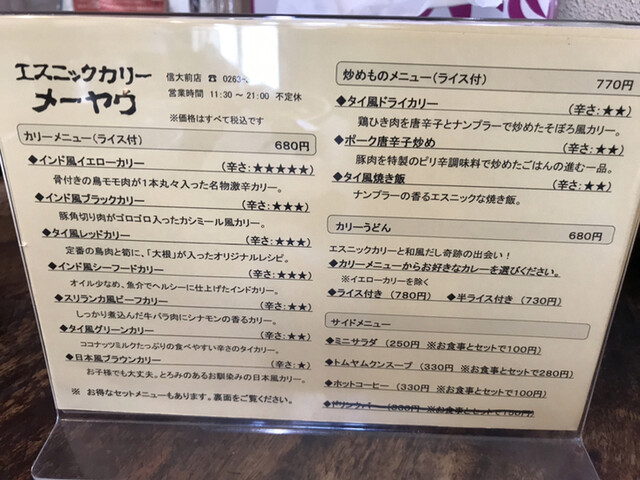 エスニックカリー
メーヤウ
信大前店 ☎ 0263-
営業時間 11:30 ～ 21:00 不定休
※価格はすべて税込です
カリーメニュー(ライス付) 680円
◆インド風イエローカリー (辛さ:★★★★★)
骨付きの鳥モモ肉が1本丸々入った名物激辛カリー。
◆インド風ブラックカリー (辛さ:★★★)
豚角切り肉がゴロゴロ入ったカシミール風カリー。
◆タイ風レッドカリー (辛さ:★★★)
定番の鳥肉と筍に、「大根」が入ったオリジナルレシピ。
◆インド風シーフードカリー (辛さ:★★)
オイル少なめ、魚介でヘルシーに仕上げたインドカリー。
◆スリランカ風ビーフカリー (辛さ:★★)
しっかり煮込んだ牛バラ肉にシナモンの香るカリー。
◆タイ風グリーンカリー (辛さ:★★)
ココナッツミルクたっぷりの食べやすい辛さのタイカリー。
◆日本風ブラウンカリー (辛さ:★)
お子様でも大丈夫。とろみのあるお馴染みの日本風カリー。
※ お得なセットメニューもあります。裏面をご覧ください。
炒めものメニュー(ライス付) 770円
◆タイ風ドライカリー (辛さ:★★)
鶏ひき肉を唐辛子とナンプラーで炒めたそぼろ風カリー。
◆ポーク唐辛子炒め (辛さ:★★)
豚肉を特製のピリ辛調味料で炒めたごはんの進む一品。
◆タイ風焼き飯 (辛さ:★★)
ナンプラーの香るエスニックな焼き飯。
カリーうどん 680円
エスニックカリーと和風だし奇跡の出会い!
◆カリーメニューからお好きなカレーを選びください。
※イエローカリーを除く
◆ライス付き (780円) ◆半ライス付き (730円)
サイドメニュー
◆ミニサラダ (250円 ※お食事とセットで100円)
◆トムヤムクンスープ (330円 ※お食事とセットで280円)
◆ホットコーヒー (330円 ※お食事とセットで100円)
◆ドリンクバー (330円 ※お食事とセットで150円)